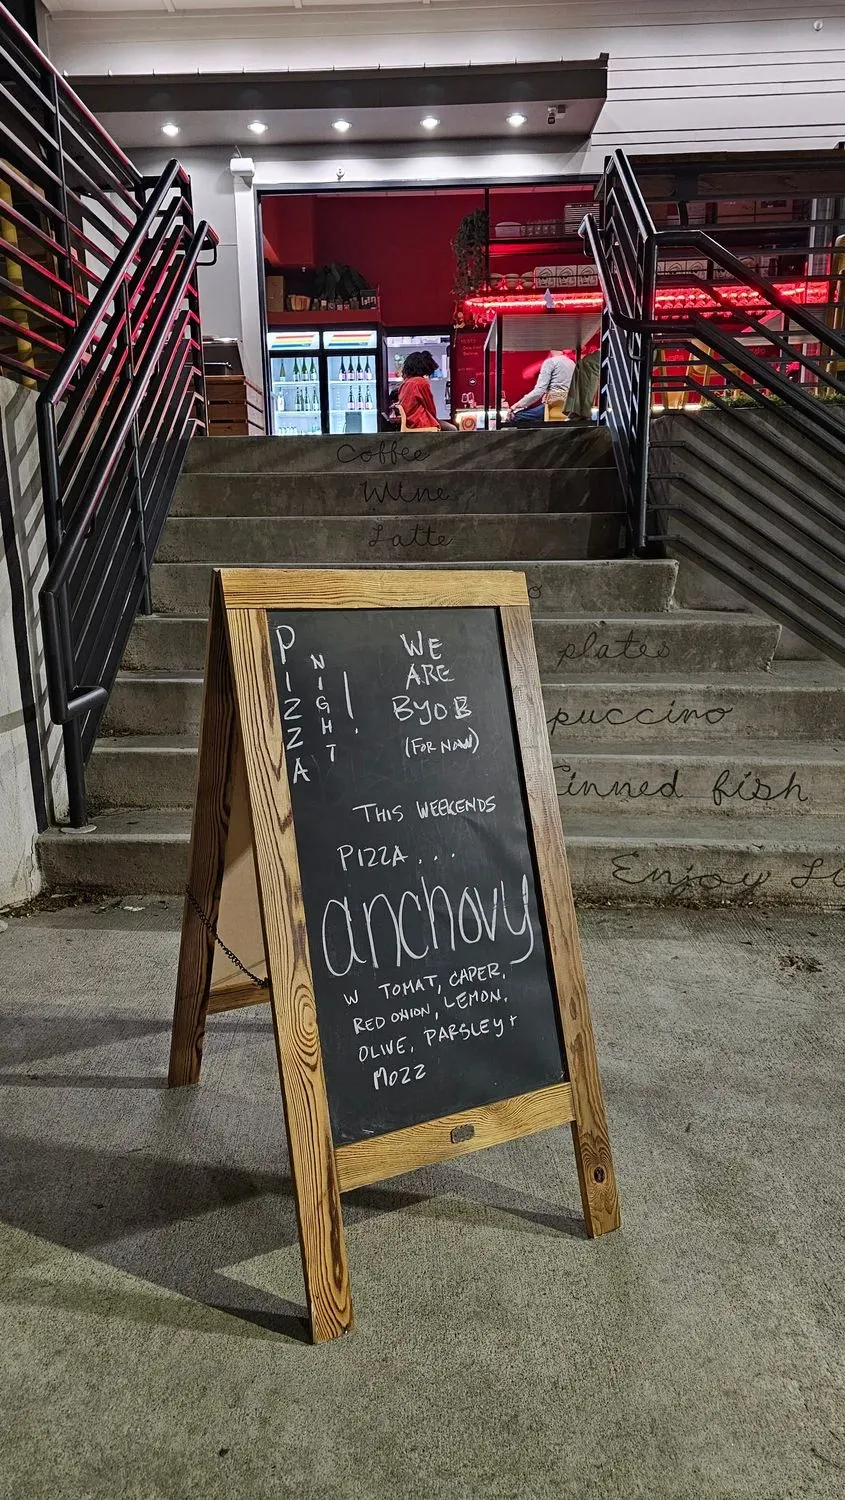 Coffee
Wine
Latte
plates
puccino
Tinned fish
Enjoy
PIZZA
NIGHT!
WE
ARE
BYOB
(FOR NOW)
THIS WEEKENDS
PIZZA...
anchovy
W TOMAT, CAPER,
RED ONION, LEMON,
OLIVE, PARSLEY +
MOZZ